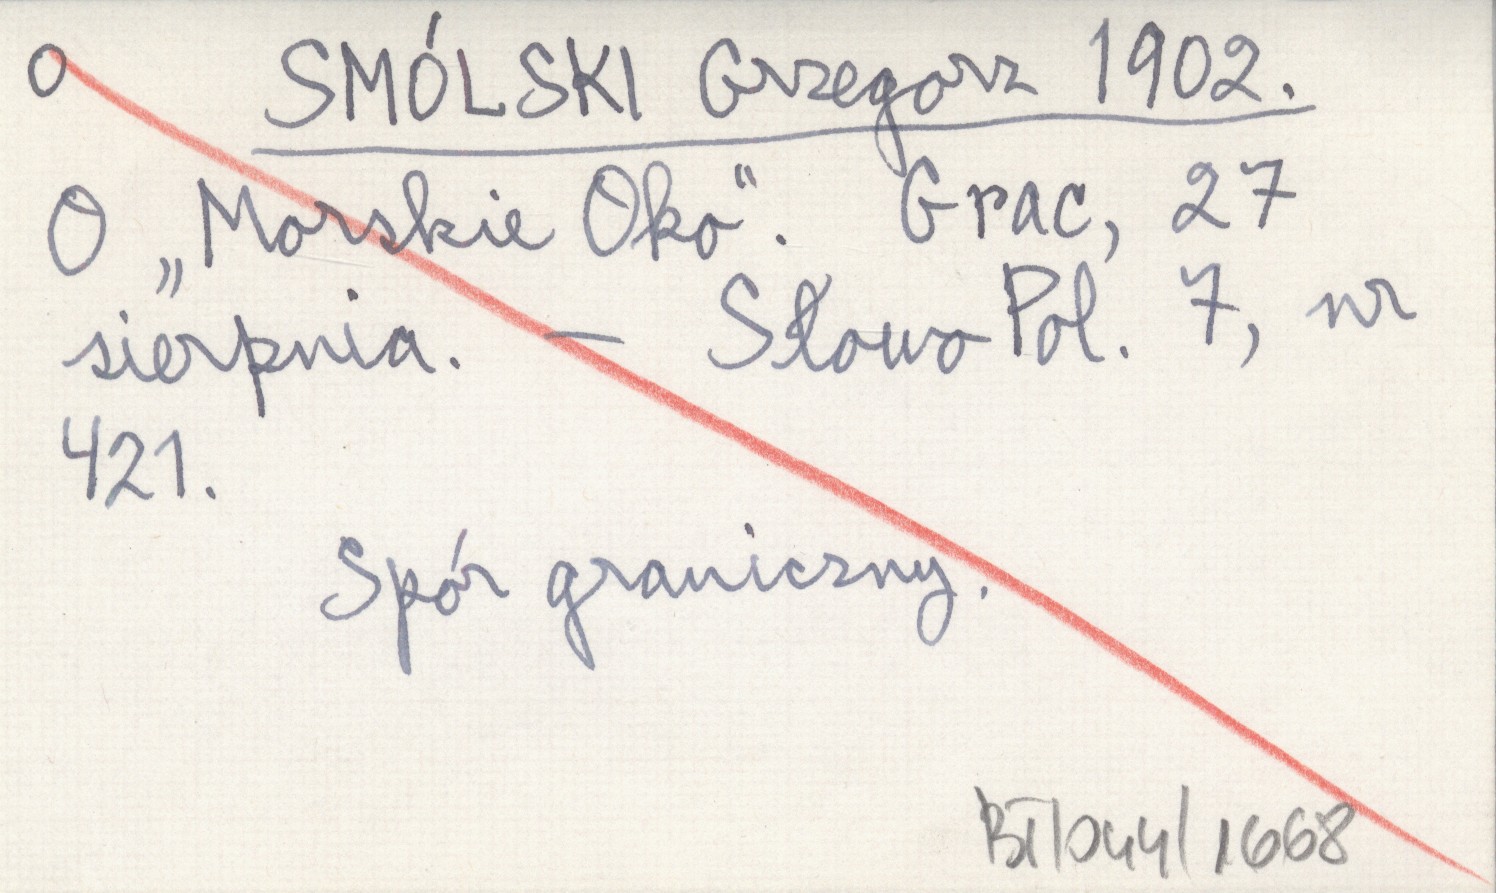 O SMÓLSKI Grzegorz 1902.
O „Morskie Oko". Grac, 27
sierpnia. — Słowo Pol. 7, nr
421.
Spór graniczny.
1668